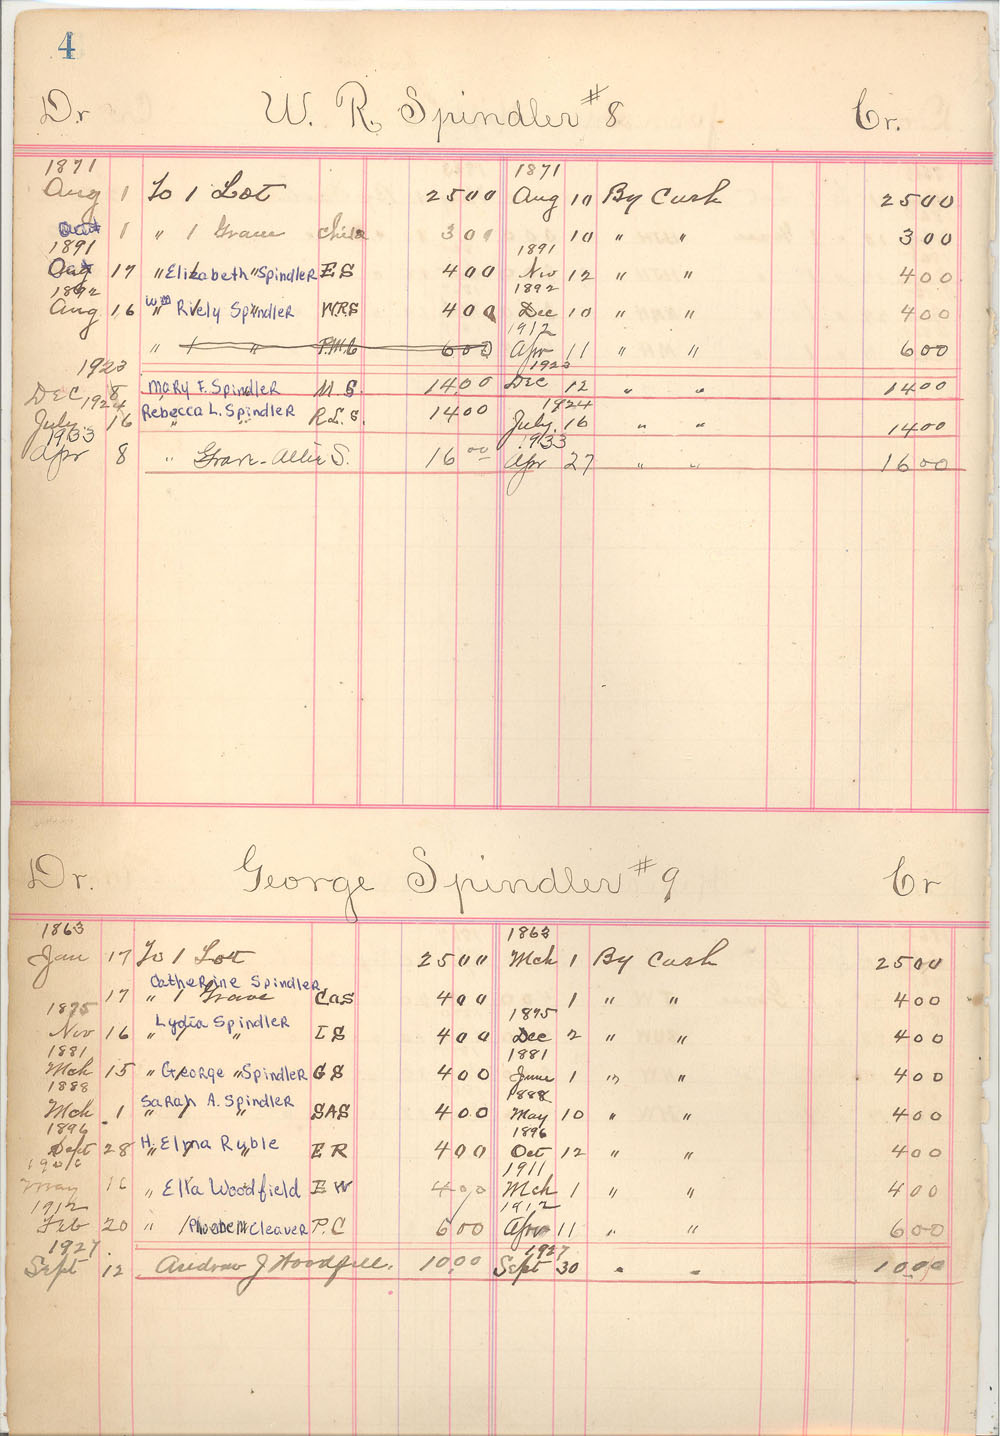 4
Dr W. R. Spindler #8 Cr.
1871 1871
Aug 1 To 1 Lot 25 00 Aug 10 By Cash 25 00
1 " 1 Grave Child 3 00 10 " " 3 00
1891 1891
17 " Elizabeth " Spindler E S 4 00 Nov 12 " " 4 00
1892 1892
Aug 16 Wm Rively Spindler WRS 4 00 Dec 10 " " 4 00
1912
" 1 " 6 00 Apr 11 " " 6 00
1923 1923
Dec 8 Mary F. Spindler M. S. 14 00 Dec 12 " " 14 00
1924 1924
July 16 Rebecca L. Spindler R. L. S. 14 00 July 16 " " 14 00
1933 1933
Apr 8 " Grave - Allie S. 16 00 Apr 27 " " 16 00
Dr. George Spindler #9 Cr
1863 1863
Jan 17 To 1 Lot 25 00 Mch 1 By Cash 25 00
Catherine Spindler
17 " 1 Grave CaS 4 00 1 " " 4 00
1875 1875
Nov 16 Lydia Spindler " 1 " L S 4 00 Dec 2 " " 4 00
1881 1881
Mch 15 " George " Spindler G S 4 00 June 1 " " 4 00
1888 1888
Mch 1 Sarah A. Spindler SAS 4 00 May 10 " " 4 00
1896 1896
Sept 28 H. Elma Ryble E R 4 00 Oct 12 " " 4 00
1911
May 16 " Ella Woodfield E W 4 00 Mch 1 " " 4 00
1912 1912
Feb 20 " Phoebe McCleaver P. C 6 00 Apr 11 " " 6 00
1927 1927
Sept 12 Andrew J Woodfill. 10 00 Sept 30 " " 10 00